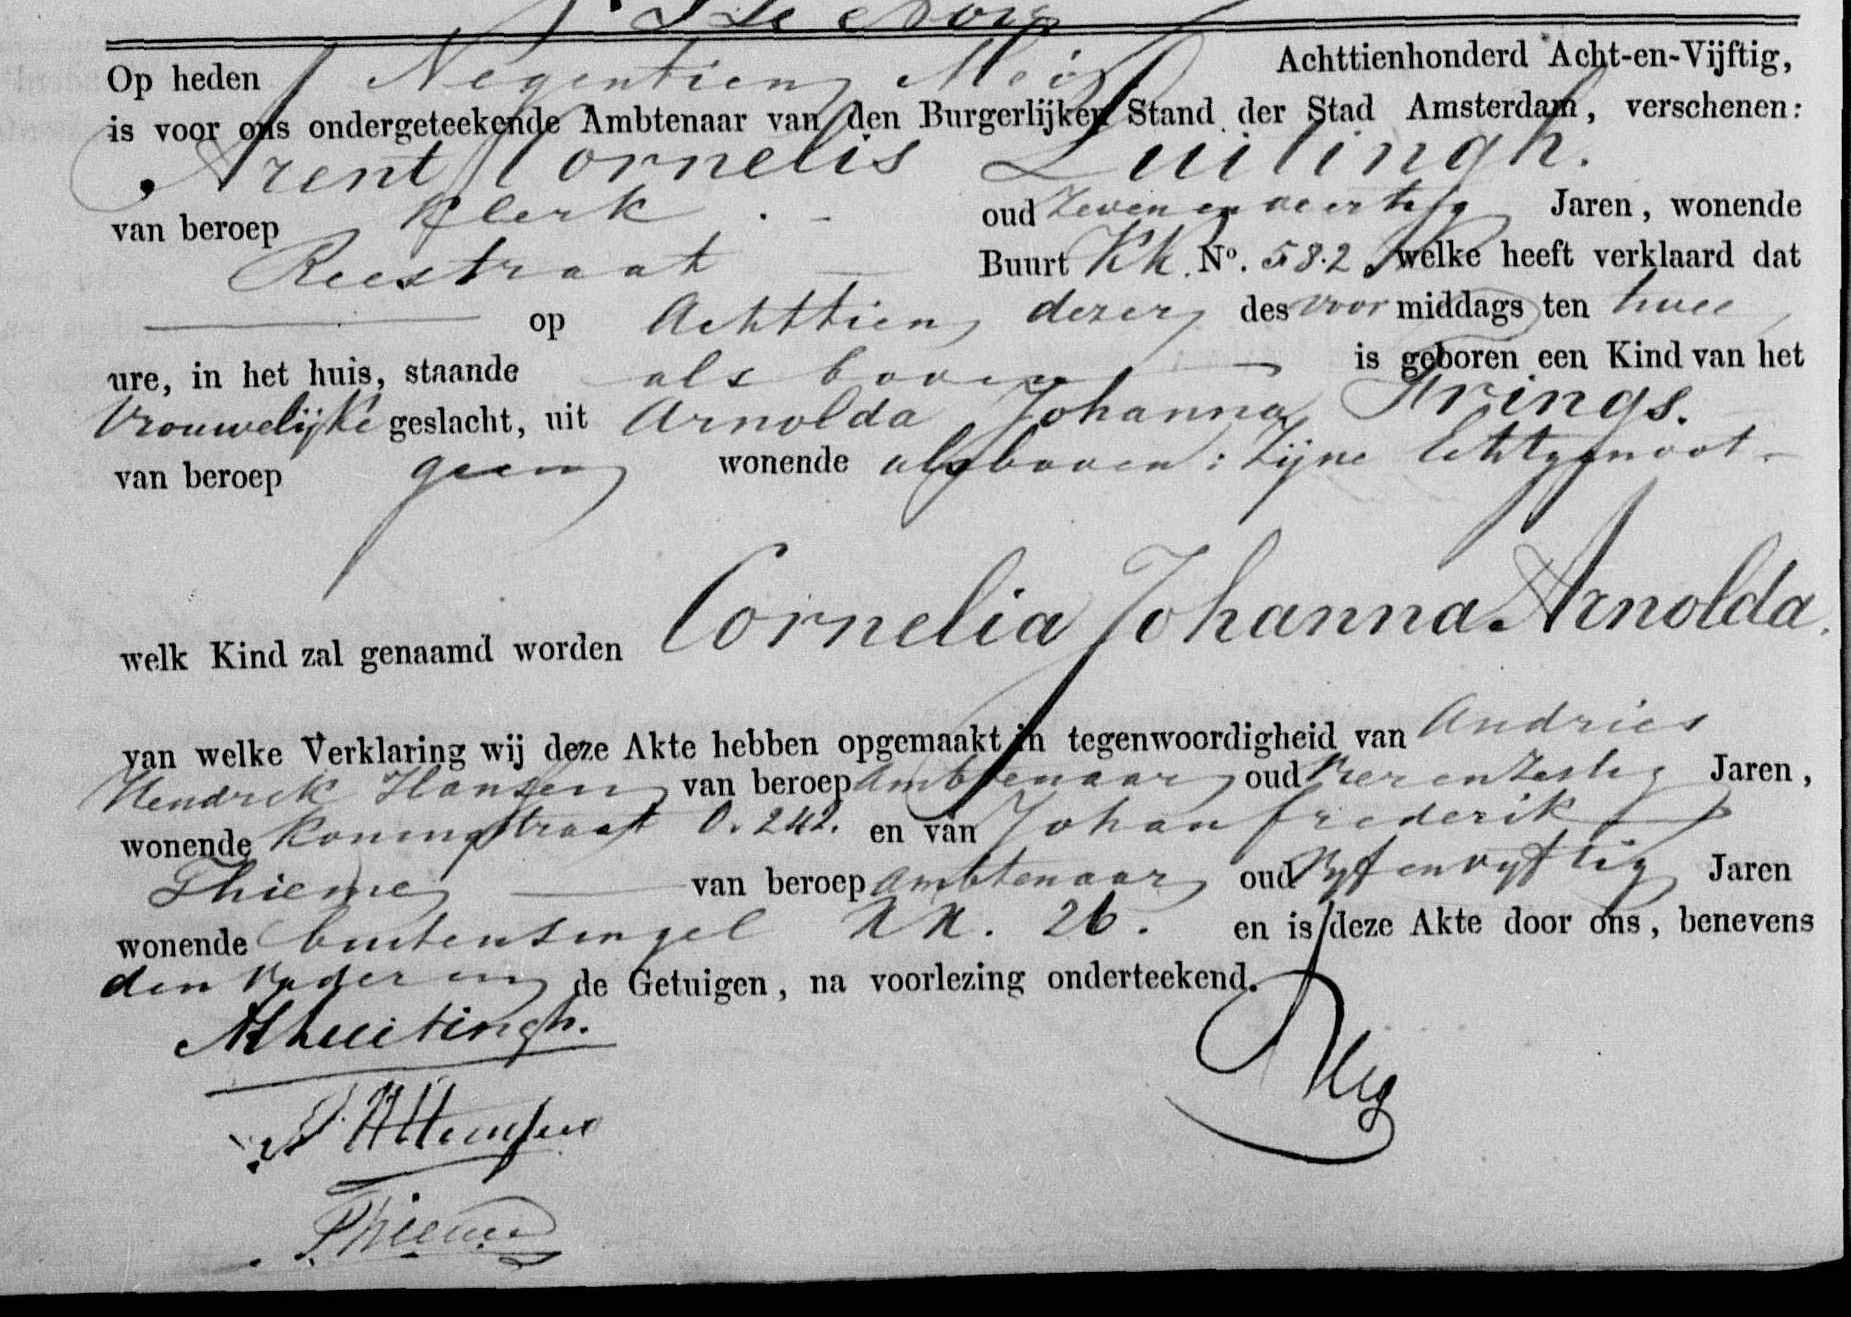 Op heden Negentien Mei Achttienhonderd Acht-en-Vijftig,
is voor ons ondergeteekende Ambtenaar van den Burgerlijken Stand der Stad Amsterdam, verschenen:
Arent Cornelis Luitingh.
van beroep Klerk oud Zevenenveertig Jaren, wonende
Reestraat Buurt KK. No. 582 welke heeft verklaard dat
op Achttien dezer des voor middags ten twee
ure, in het huis, staande als boven is geboren een Kind van het
Vrouwelijke geslacht, uit Arnolda Johanna Frings.
van beroep geen wonende als boven: Zijne Echtgenoot
welk Kind zal genaamd worden Cornelia Johanna Arnolda.
van welke Verklaring wij deze Akte hebben opgemaakt in tegenwoordigheid van Andries
Hendrik Hansen van beroep ambtenaar oud Vierenzestig Jaren,
wonende Koningstraat O. 242. en van Johan frederik
Thieme van beroep ambtenaar oud Vyfenvyftig Jaren
wonende buitensingel XX. 26. en is deze Akte door ons, benevens
den Vader en de Getuigen, na voorlezing onderteekend.
ACLuitingh.
AHHansen
Thieme